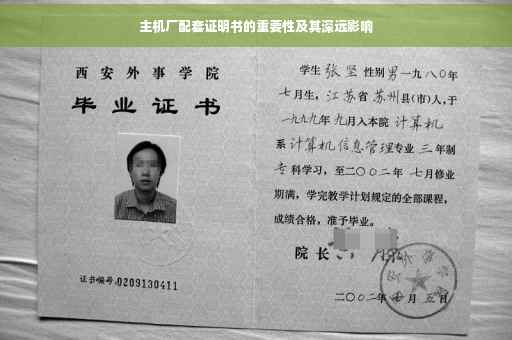 主机厂配套证明书的重要性及其深远影响
西安外事学院
毕业证书
证书编号:0209130411
学生 张坚 性别 男 一九八〇年
七月生，江苏省 苏州县(市)人,于
一九九九年 九月入本院 计算机
系 计算机信息管理专业 三 年制
专 科学习，至二〇〇二年 七月修业
期满，学完教学计划规定的全部课程，
成绩合格，准予毕业。
院 长
二〇〇二年 月 五日